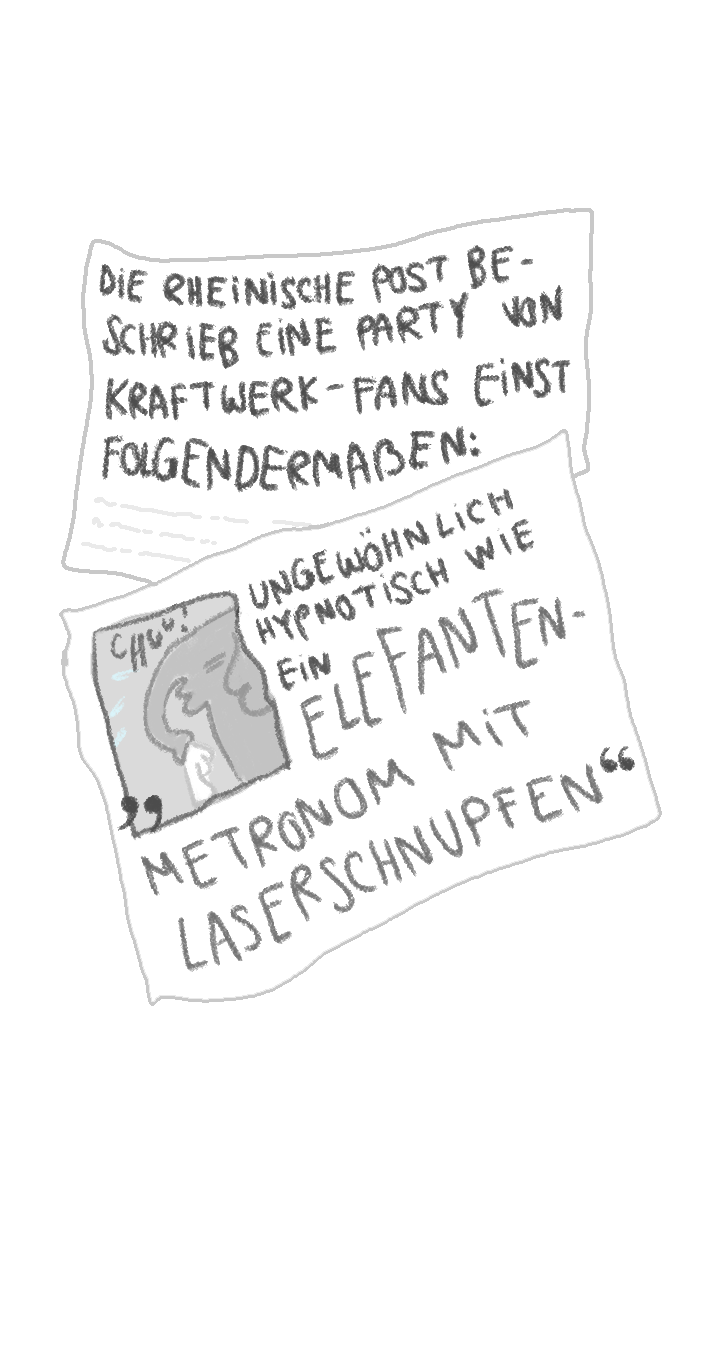 DIE RHEINISCHE POST BE-
SCHRIEB EINE PARTY VON
KRAFTWERK-FANS EINST
FOLGENDERMAßEN:
UNGEWÖHNLICH
HYPNOTISCH WIE
EIN ELEFANTEN-
CHUU!
„METRONOM MIT
LASERSCHNUPFEN“